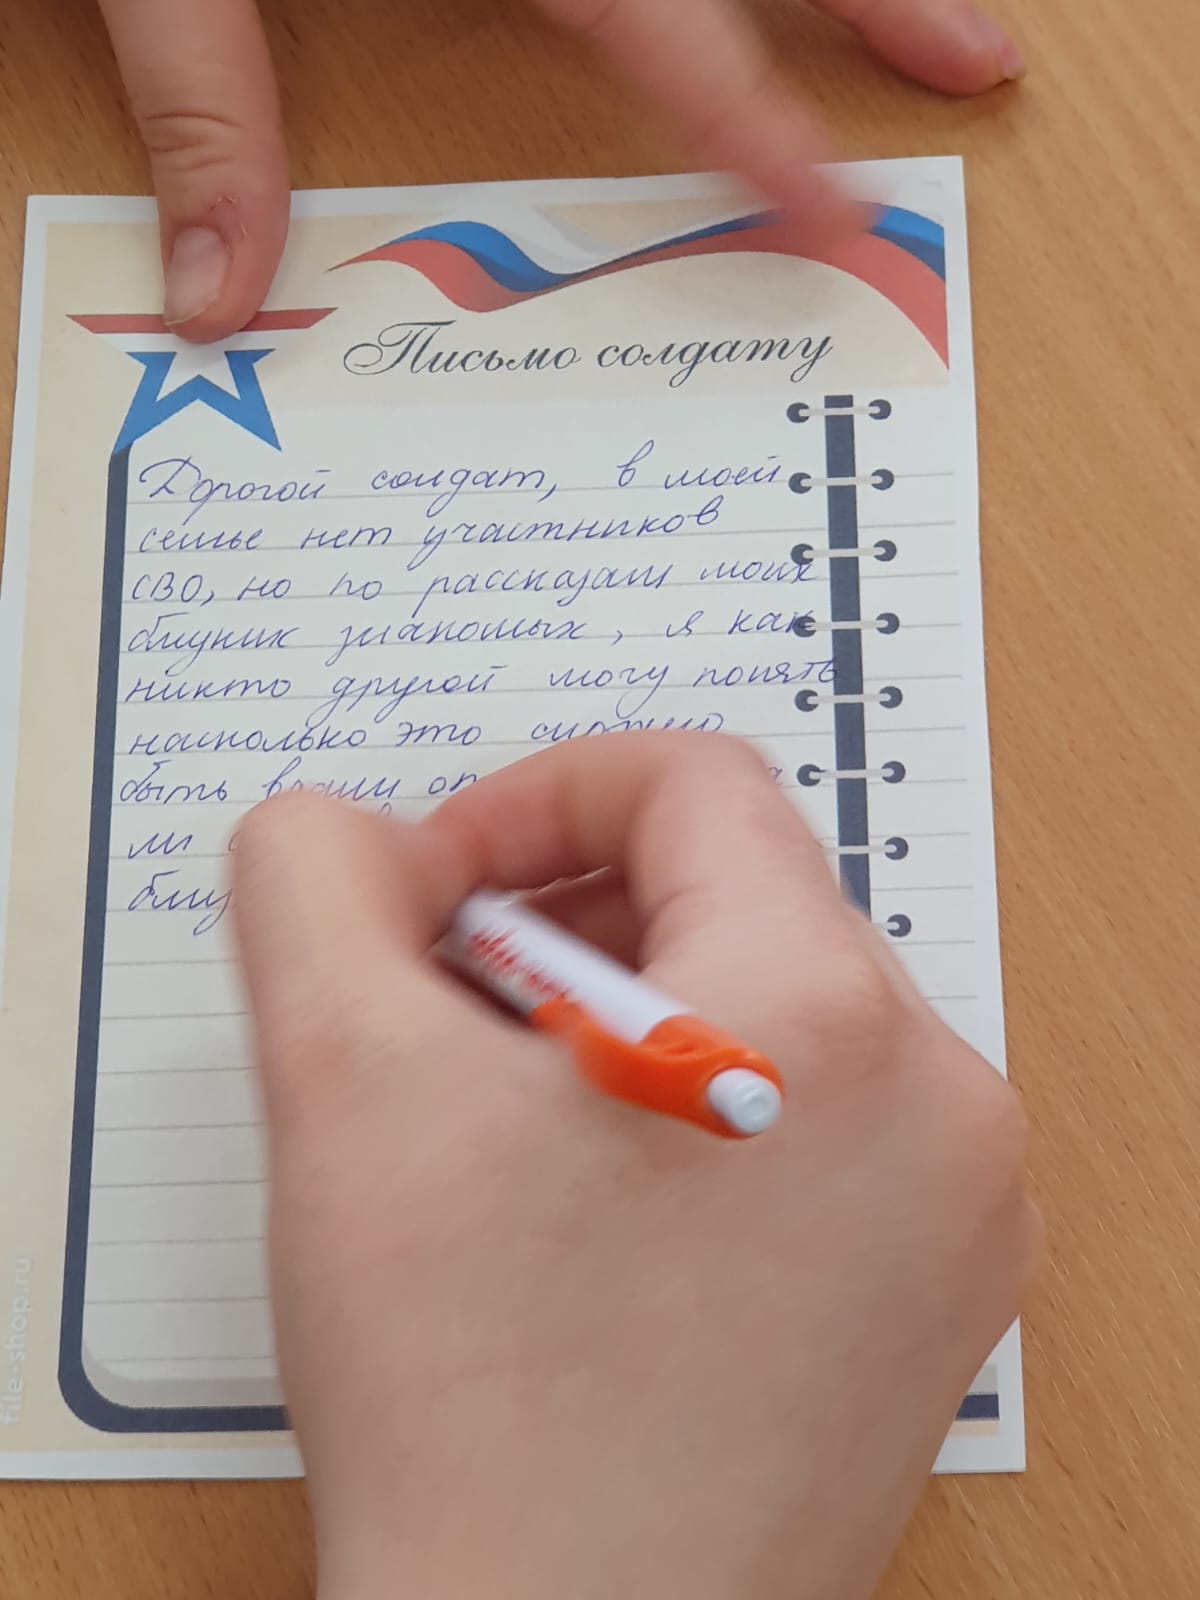 Письмо солдату
Дорогой солдат, в моей
семье нет участников
СВО, но по рассказам моих
близких знакомых, я как
никто другой могу понять
насколько это сложно
быть вдали от
ли
file-shop.ru